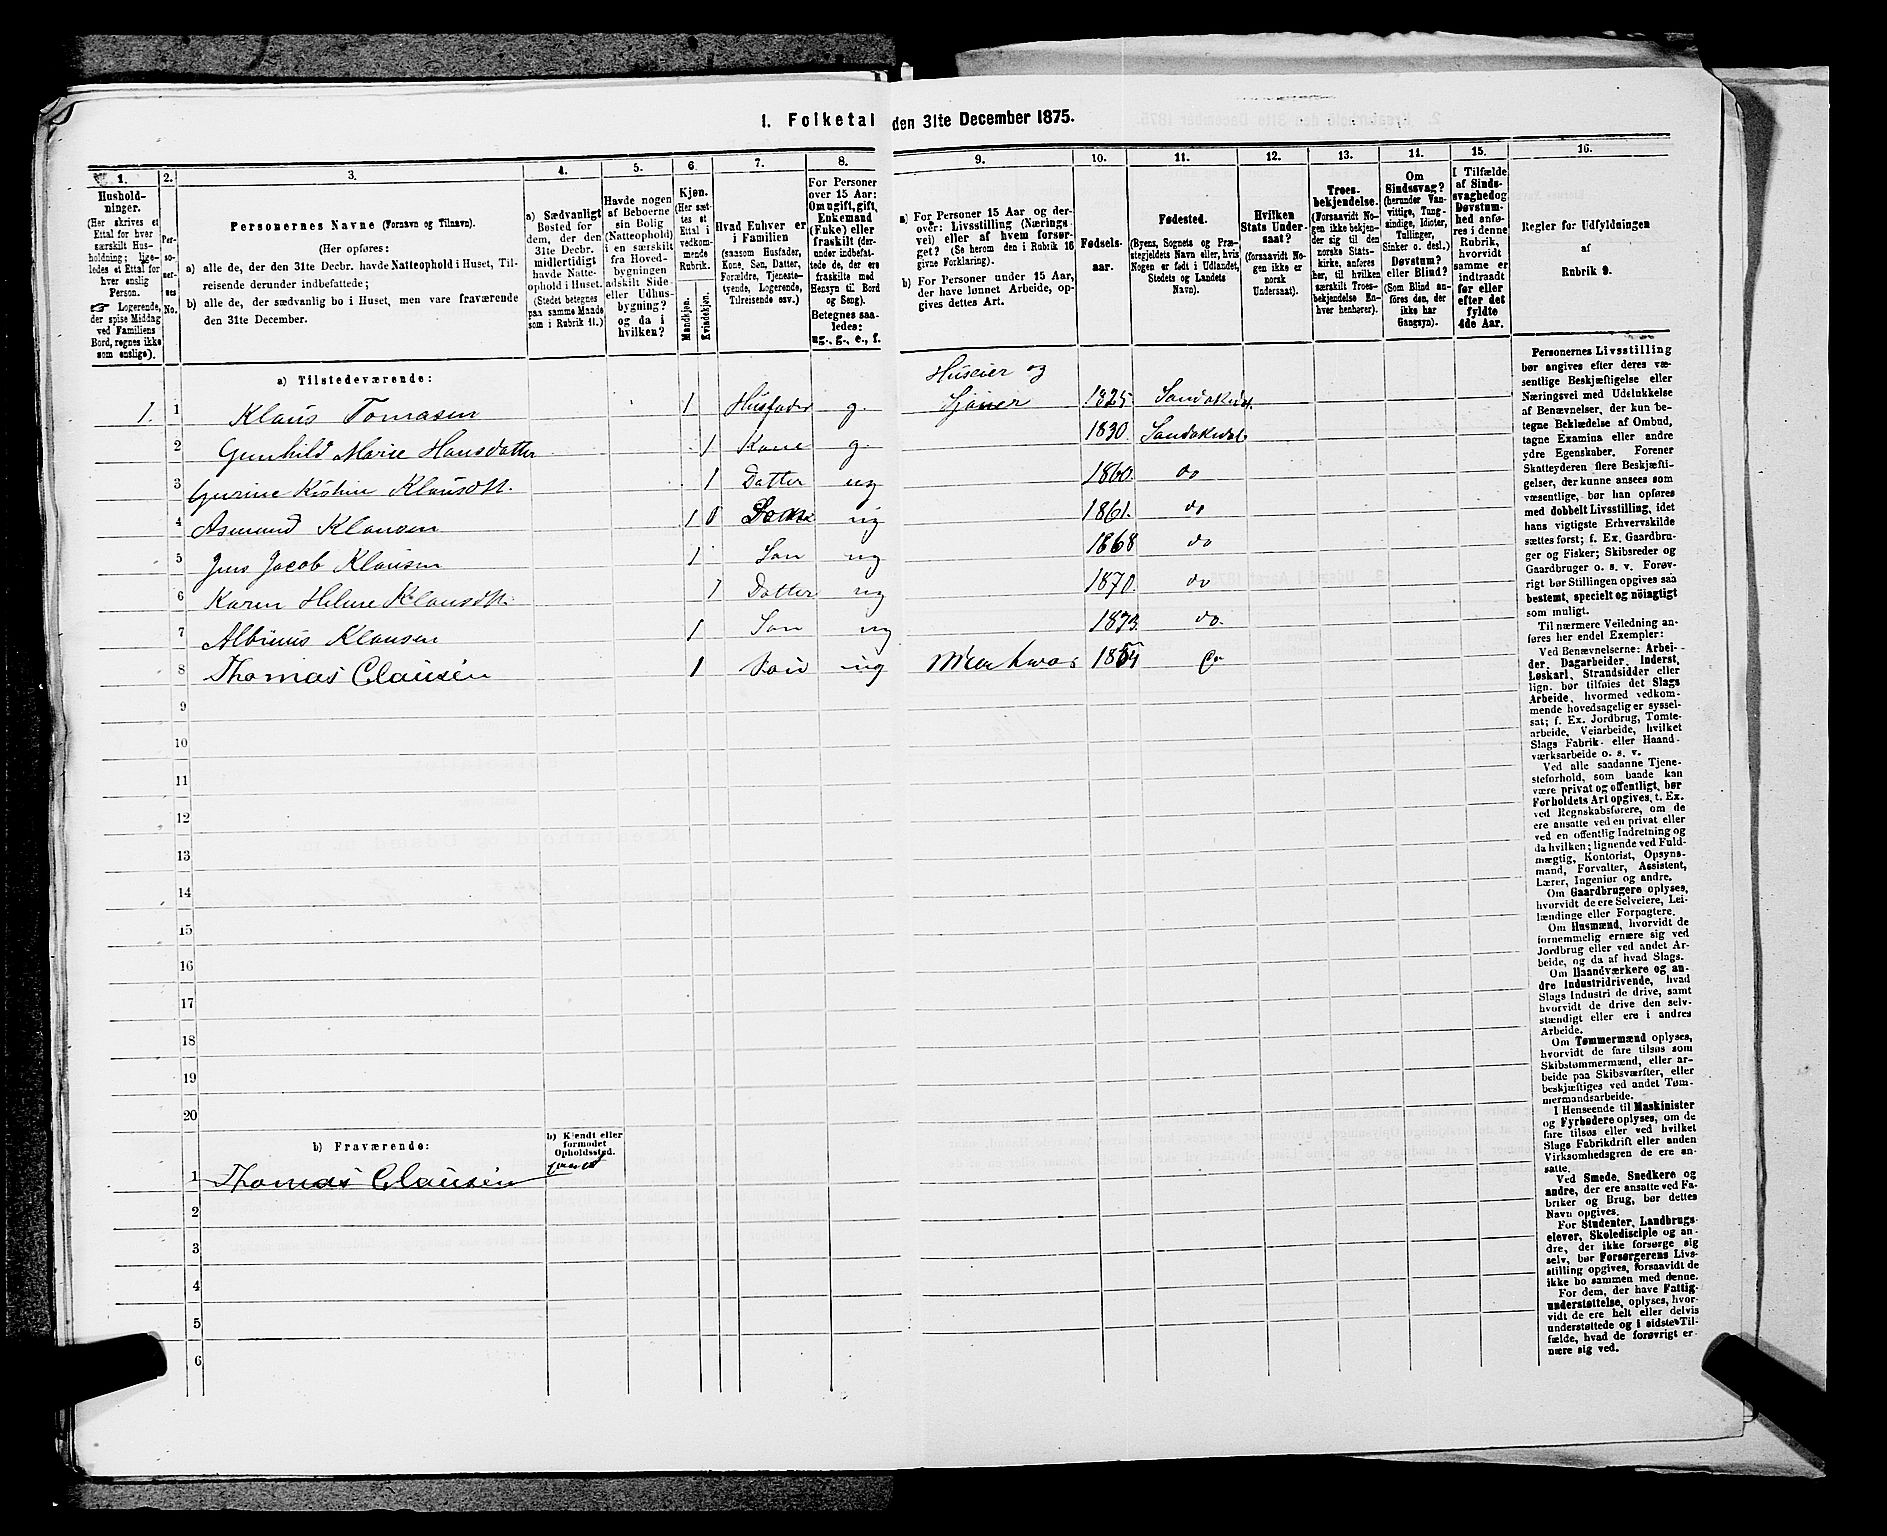 1. Folketal den 31te December 1875.
1. 2. 3. 4. 5. 6. 7. 8. 9. 10. 11. 12. 13. 14. 15. 16.
Hushold-
ninger.
(Her skrives et
Ettal for hver
særskilt Hus-
holdning; lige-
ledes et Ettal for
hver enslig
Person.
☞ Logerende,
der spise Middag
ved Familiens
Bord, regnes ikke
som enslige).
Per-
so-
ner-
nes
No.
Personernes Navne (Fornavn og Tilnavn).
(Her opføres:
a) alle de, der den 31te Decbr. havde Natteophold i Huset, Til-
reisende derunder indbefattede;
b) alle de, der sædvanlig bo i Huset, men vare fraværende
den 31te December.
a) Sædvanligt
Bosted for
dem, der den
31te Decbr.
midlertidigt
havde Natte-
ophold i Huset.
(Stedet betegnes
paa samme Maade
som i Rubrik 11.)
Havde nogen
af Beboerne
sin Bolig
(Natteophold)
i en særskilt
fra Hoved-
bygningen
adskilt Side-
eller Udhus-
bygning?
og da i
hvilken?
Kjøn.
(Her sæt-
tes et
Ettal i
vedkom-
mende
Rubrik.
Mandkjøn.
Kvindekjøn.
Hvad Enhver er
i Familien
(saasom Husfader,
Kone, Søn, Datter,
Forældre, Tjeneste-
tyende, Logerende,
Tilreisende osv.)
For Personer
over 15 Aar:
Om ugift, gift,
Enkemand
(Enke) eller
fraskilt (der-
under indbefat-
tede de, der ere
fraskilte med
Hensyn til Bord
og Seng).
Betegnes saa-
ledes:
ug., g., e., f.
a) For Personer 15 Aar og der-
over: Livsstilling (Nærings-
vei) eller af hvem forsør-
get? (Se herom den i Rubrik 16
givne Forklaring).
b) For Personer under 15 Aar,
der have lønnet Arbeide, op-
gives dettes Art.
Fødsels-
aar.
Fødested.
(Byens, Sognets og Præ-
stegjeldets Navn eller, hvis
Nogen er født i Udlandet,
Stedets og Landets
Navn).
Hvilken
Stats Under-
saat?
(forsaavidt No-
gen ikke er
norsk
Undersaat).
Troes-
bekjendelse.
(Forsaavidt No-
gen ikke bekjen-
der sig til den
norske Stats-
kirke, anføres
her, til hvilken
særskilt Troes-
bekjendelse En-
hver henhører).
Om
Sindssvag?
(herunder Van-
vittige, Tung-
sindige, Idioter,
Tullinger,
Sinker o. desl.)
Døvstum?
eller Blind?
(Som Blind an-
føres den, der
ikke har
Gangsyn).
I Tilfælde
af Sinds-
svaghed og
Døvstum-
hed anfø-
res i denne
Rubrik,
hvorvidt
samme er
indtraadt
før eller
efter det
fyldte
4de Aar.
Regler for Udfyldningen
af
Rubrik 9.
a) Tilstedeværende:
Huseier og
1. 1 Klaus Tomasen 1 Husfader g. 1825. Sandøkedal.
2 Gunhild Marie Hansdatter 1 Kone g. 1830. Sandøkedal.
3 Gurine Kistine Klausdtt. 1 Datter ug 1860. do
4 Asmund Klausen 1 ug 1861. do
5 Jens Jacob Klausen 1 Søn ug 1868 do
6 Karen Helene Klausdtt. 1 Datter ug 1870. do
7 Albinus Klausen 1 Søn ug 1873. do.
8 Thomas Clausen 1 Søn ug do
9
10
11
12
13
14
15
16
17
18
19
20
b) Fraværende:
b) Kjendt eller
formodet
Opholdssted.
1 Thomas Clausen
2
3
4
5
6
Personernes Livsstilling
bør angives efter deres væ-
sentlige Beskjæftigelse eller
Næringsvei med Udelukkelse
af Benævnelser, der kun be-
tegne Beklædelse af Ombud,
tagne Examina eller andre
ydre Egenskaber. Forener
Skatteyderen flere Beskjæfti-
gelser, der kunne ansees som
væsentlige, bør han opføres
med dobbelt Livsstilling, idet
hans vigtigste Erhvervskilde
sættes først; f. Ex. Gaardbru-
ger og Fisker; Skibsreder og
Gaardbruger o. s. v. Forøv-
rigt bør Stillingen opgives saa
bestemt, specielt og nøiagtigt
som muligt.
Til nærmere Veiledning an-
føres her endel Exempler:
Ved Benævnelserne: Arbei-
der, Dagarbeider, Inderst,
Løskarl, Strandsidder eller
lign. bør tilføies det Slags
Arbeide, hvormed vedkom-
mende hovedsagelig er syssel-
sat; f. Ex. Jordbrug, Tomte-
arbeide, Veiarbeide, hvilket
Slags Fabrik- eller Haand-
værksarbeide o. s. v.
Ved alle saadanne Tjene-
steforhold, som baade kan
være privat og offentligt, bør
Forholdets Art opgives, t. Ex.
ved Regnskabsførere, om de
ere ansatte ved en privat eller
ved en offentlig Indretning og
da hvilken; lignende ved Fuld-
mægtig, Kontorist, Opsyns-
mand, Forvalter, Assistent,
Lærer, Ingeniør og andre.
Om Gaardbrugere oplyses,
hvorvidt de ere Selveiere, Lei-
lændinge eller Forpagtere.
Om Husmænd, hvorvidt de
fornemmelig ernære sig ved
Jordbrug eller ved andet Ar-
beide, og da af hvad Slags.
Om Haandværkere og an-
dre Industridrivende, hvad
Slags Industri de drive, samt
hvorvidt de drive den selv-
stændigt eller ere i andres
Arbeide.
Om Tømmermænd oplyses,
hvorvidt de fare tilsøs som
Skibstømmermænd, eller ar-
beide paa Skibsværfter, eller
beskjæftiges ved andet Tøm-
mermandsarbeide.
I Henseende til Maskinister
og Fyrbødere oplyses, om de
fare tilsøs eller ved hvilket
Slags Fabrikdrift eller anden
Virksomhedsgren de ere an-
satte.
Ved Smede, Snedkere og
andre, der ere ansatte ved Fa-
briker og Brug, bør dettes
Navn opgives.
For Studenter, Landbrugs-
elever, Skoledisciple og an-
dre, der ikke forsørge sig
selv, bør Forsørgerens Livs-
stilling opgives, forsaavidt de
ikke bo sammen med denne.
For dem, der have Fattig-
understøttelse, oplyses, hvor-
vidt de ere helt eller delvis
understøttede og i sidste Til-
fælde, hvad de forøvrigt er-
nære sig ved.